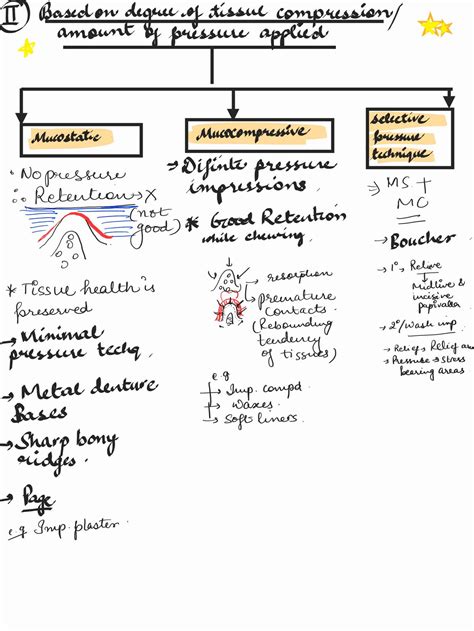 II Based on degree of tissue compression/
amount of pressure applied
Mucostatic
No pressure
∴ Retention → X
(not
good)
* Tissue health is
preserved
→ Minimal
pressure techq
→ Metal denture
Bases
→ Sharp bony
ridges.
→ Page
e.g Imp. plaster.
Mucocompressive
→ Difinite pressure
impressions
* Good Retention
while chewing
→ resorption
→ premature
contacts
(Rebounding
tendency
of tissues)
e.g
→ Imp. compd
→ waxes
→ Soft liners.
selective
pressure
technique
→ MS +
MC
→ Boucher
→ 1°, Relieve
→ Midline &
incisive
papivalla
→ 2°/Wash imp.
→ Relief → Relief area
→ Pressure → Stress
bearing areas